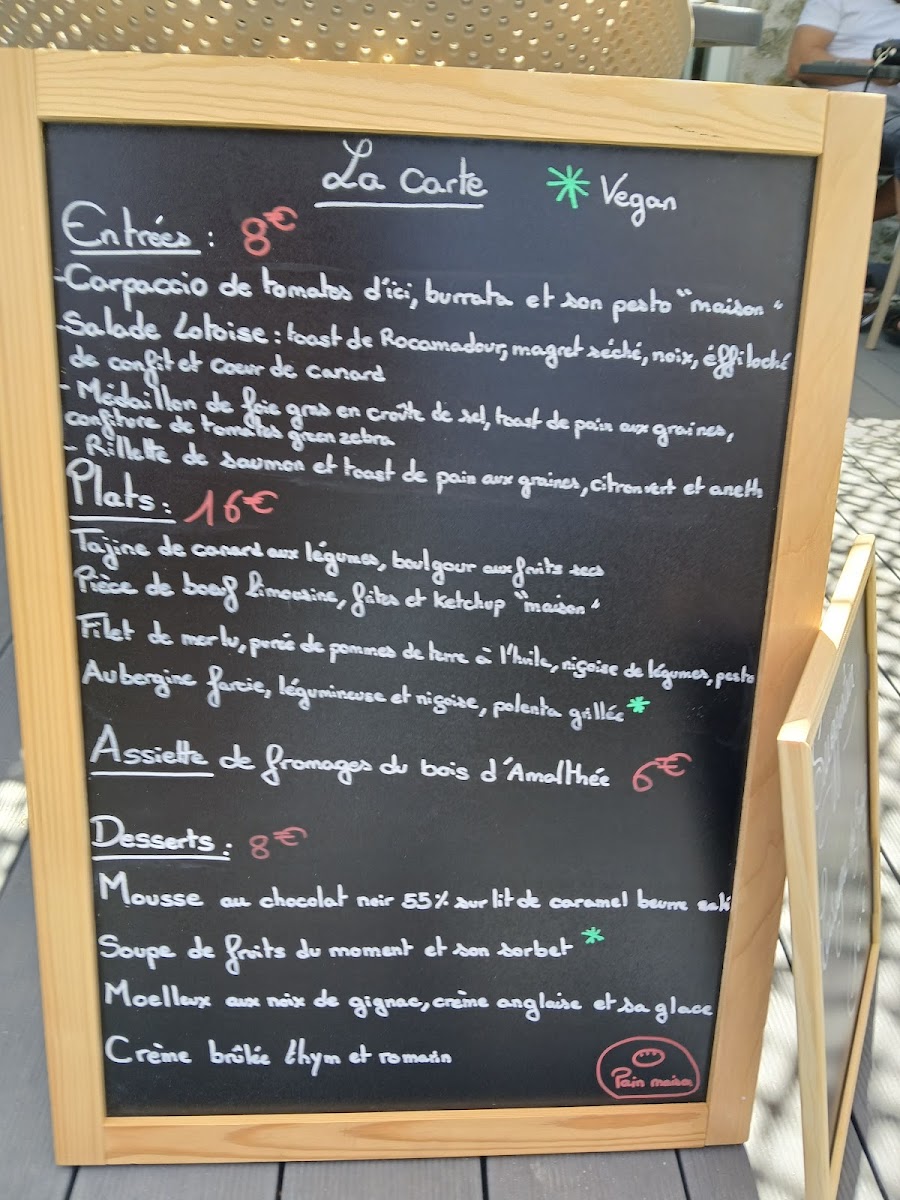 La Carte * Vegan
Entrées : 8€
- Carpaccio de tomates d'ici, burrata et son pesto "maison"
- Salade Lotoise : toast de Rocamadour, magret séché, noix, éffiloché
de confit et coeur de canard
- Médaillon de foie gras en croûte de sel, toast de pain aux graines,
confiture de tomates green zebra
- Rillette de saumon et toast de pain aux graines, citron vert et aneth
Plats : 16€
Tajine de canard aux légumes, boulgour aux fruits secs
Pièce de boeuf limousine, frites et Ketchup "maison"
Filet de merlu, purée de pommes de terre à l'huile, niçoise de légumes, pesto
Aubergine farcie, légumineuse et niçoise, polenta grillée *
Assiette de fromages du bois d'Amalthée 6€
Desserts : 8€
Mousse au chocolat noir 55% sur lit de caramel beurre salé
Soupe de fruits du moment et son sorbet *
Moelleux aux noix de gignac, crème anglaise et sa glace
Crème brûlée thym et romarin
Pain maison